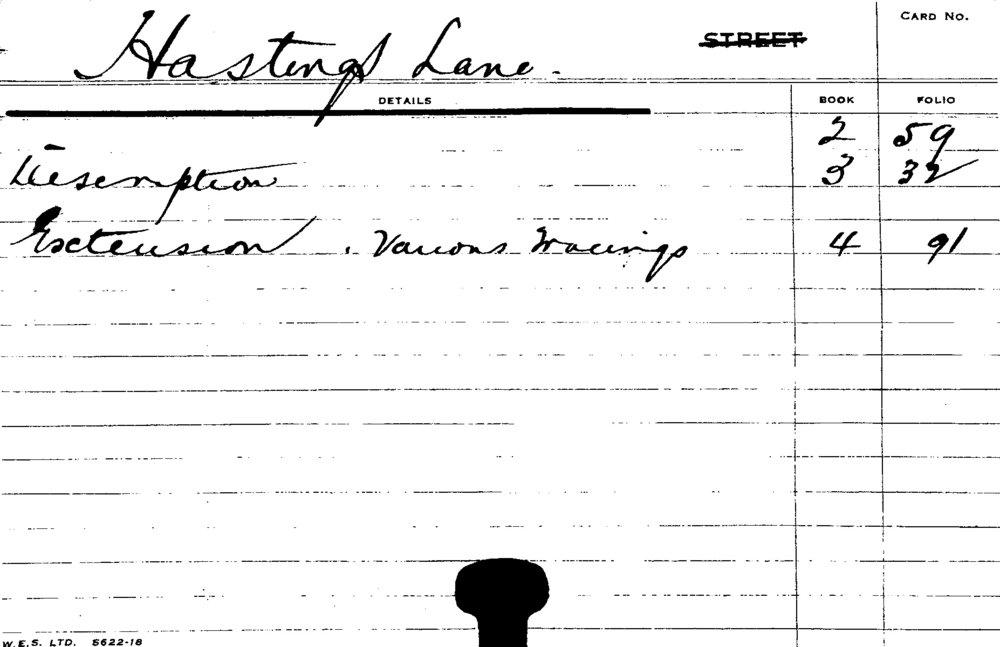 CARD NO.
Hastings Lane. STREET
DETAILS BOOK FOLIO
2 59
Description 3 32
Extension . Various Tracings 4 91
W.E.S. LTD. S622-18